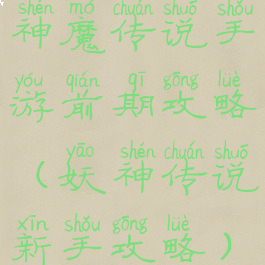 shén mó chuán shuō shǒu
神魔传说手
yóu qián qī gōng lüè
游前期攻略
yāo shén chuán shuō
（妖神传说
xīn shǒu gōng lüè
新手攻略）